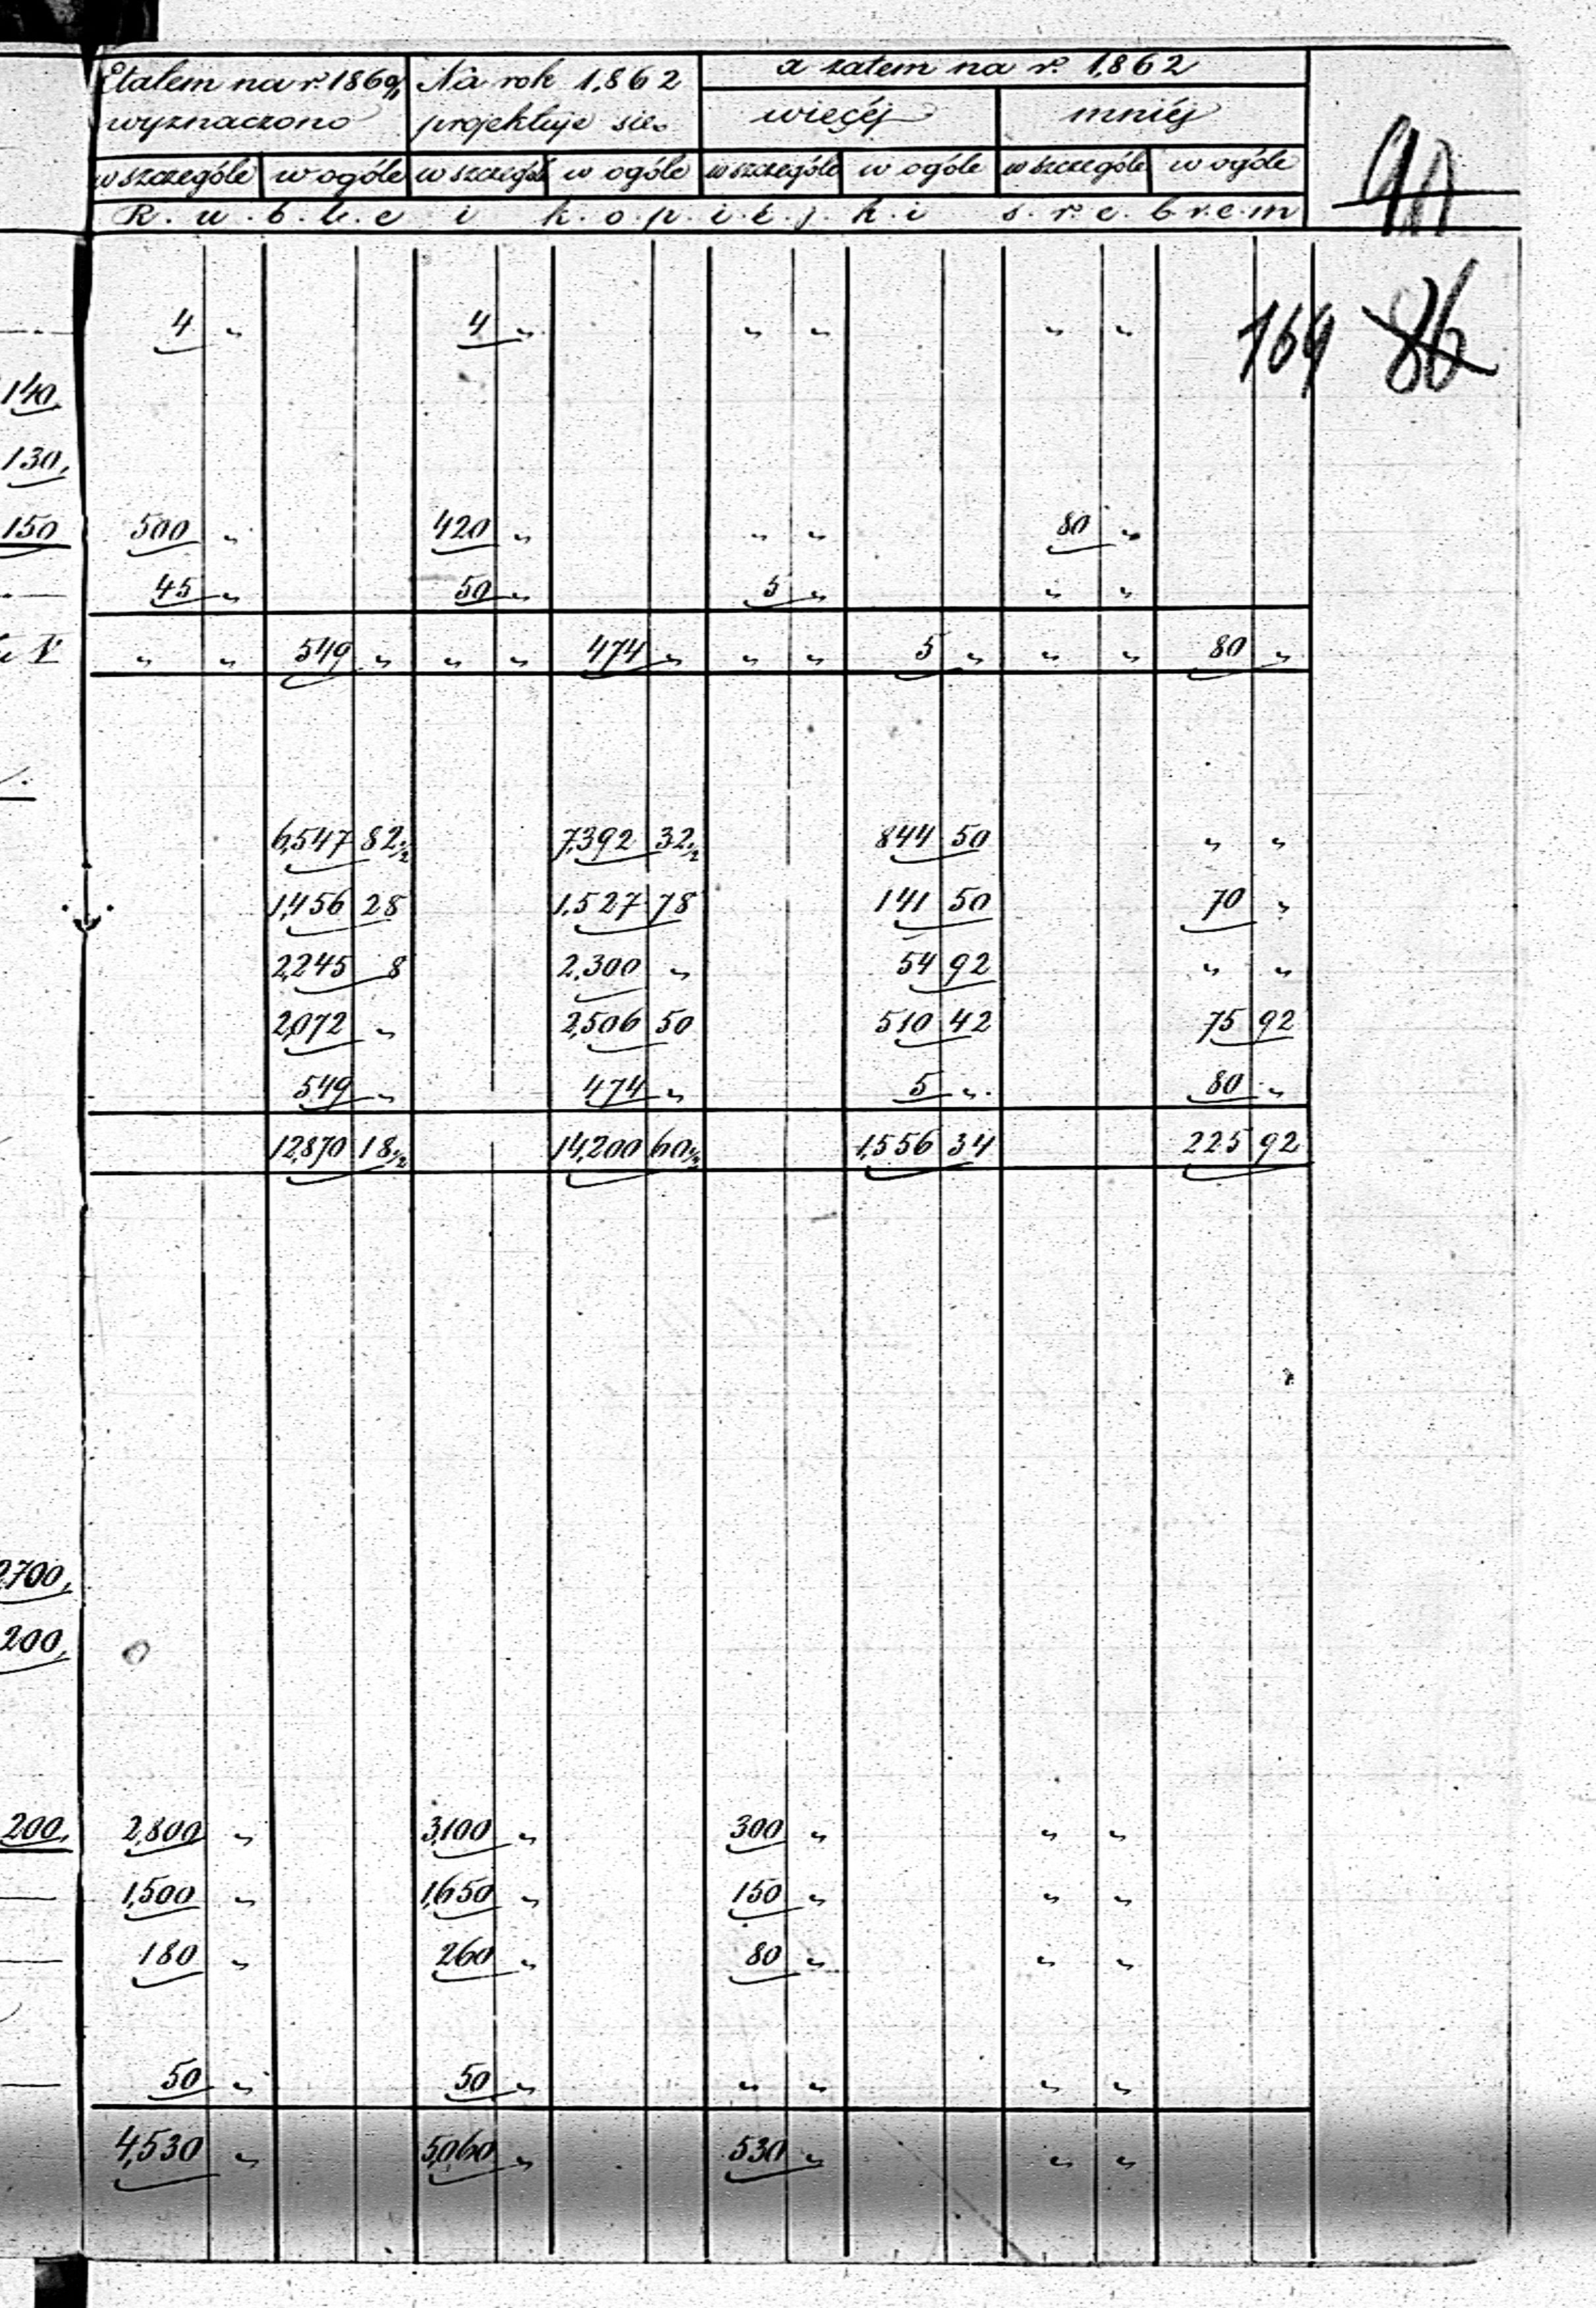 Etatem na r. 1860/1 Na rok 1,862 a zatem na r. 1,862
wyznaczono projektuje się więcéj mniéj
w szczególe w ogóle w szczególe w ogóle w szczególe w ogóle w szczególe w ogóle
R.u.b.l.e i k.o.p.i.e.j.k.i s.r.e.b.r.e.m
90
4 " 4 " " " " "
169 86
140.
130.
150 500 " 420 " " " 80 "
45 " 50 " 5 " " "
V " " 549 " " " 474 " " " 5 " " " 80 "
6,547 82½ 7,392 32½ 844 50 " "
1,456 28 1,527 78 141 50 70 "
2,245 8 2,300 " 54 92 " "
2,072 " 2,506 50 510 42 75 92
549 " 474 " 5 " 80 "
12,870 18½ 14,200 60½ 1,556 34 225 92
2,700.
200.
200. 2,800 " 3,100 " 300 " " "
1,500 " 1,650 " 150 " " "
180 " 260 " 80 " " "
50 " 50 " " " " "
4,530 " 5,060 " 530 " " "